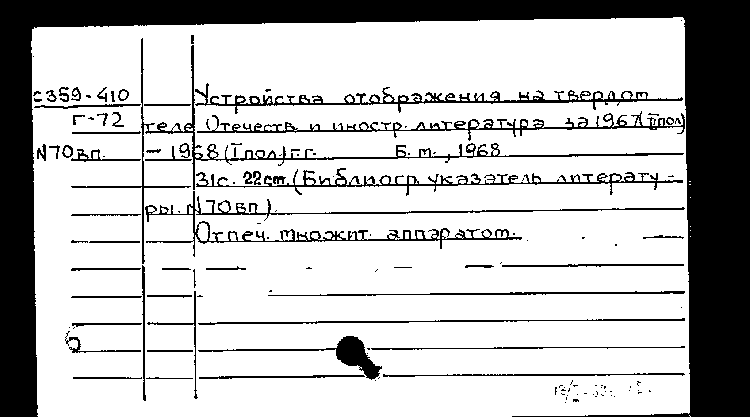 с359-410 Устройства отображения на твердом
Г-72 теле Отечеств. и иностр. литература за 1967(II пол)
N70вп. – 1968(I пол) г.г. Б.м., 1968
31с. 22см. (Библиогр. указатель литерату-
ры. N70вп).
Отпеч. множит. аппаратом.
б